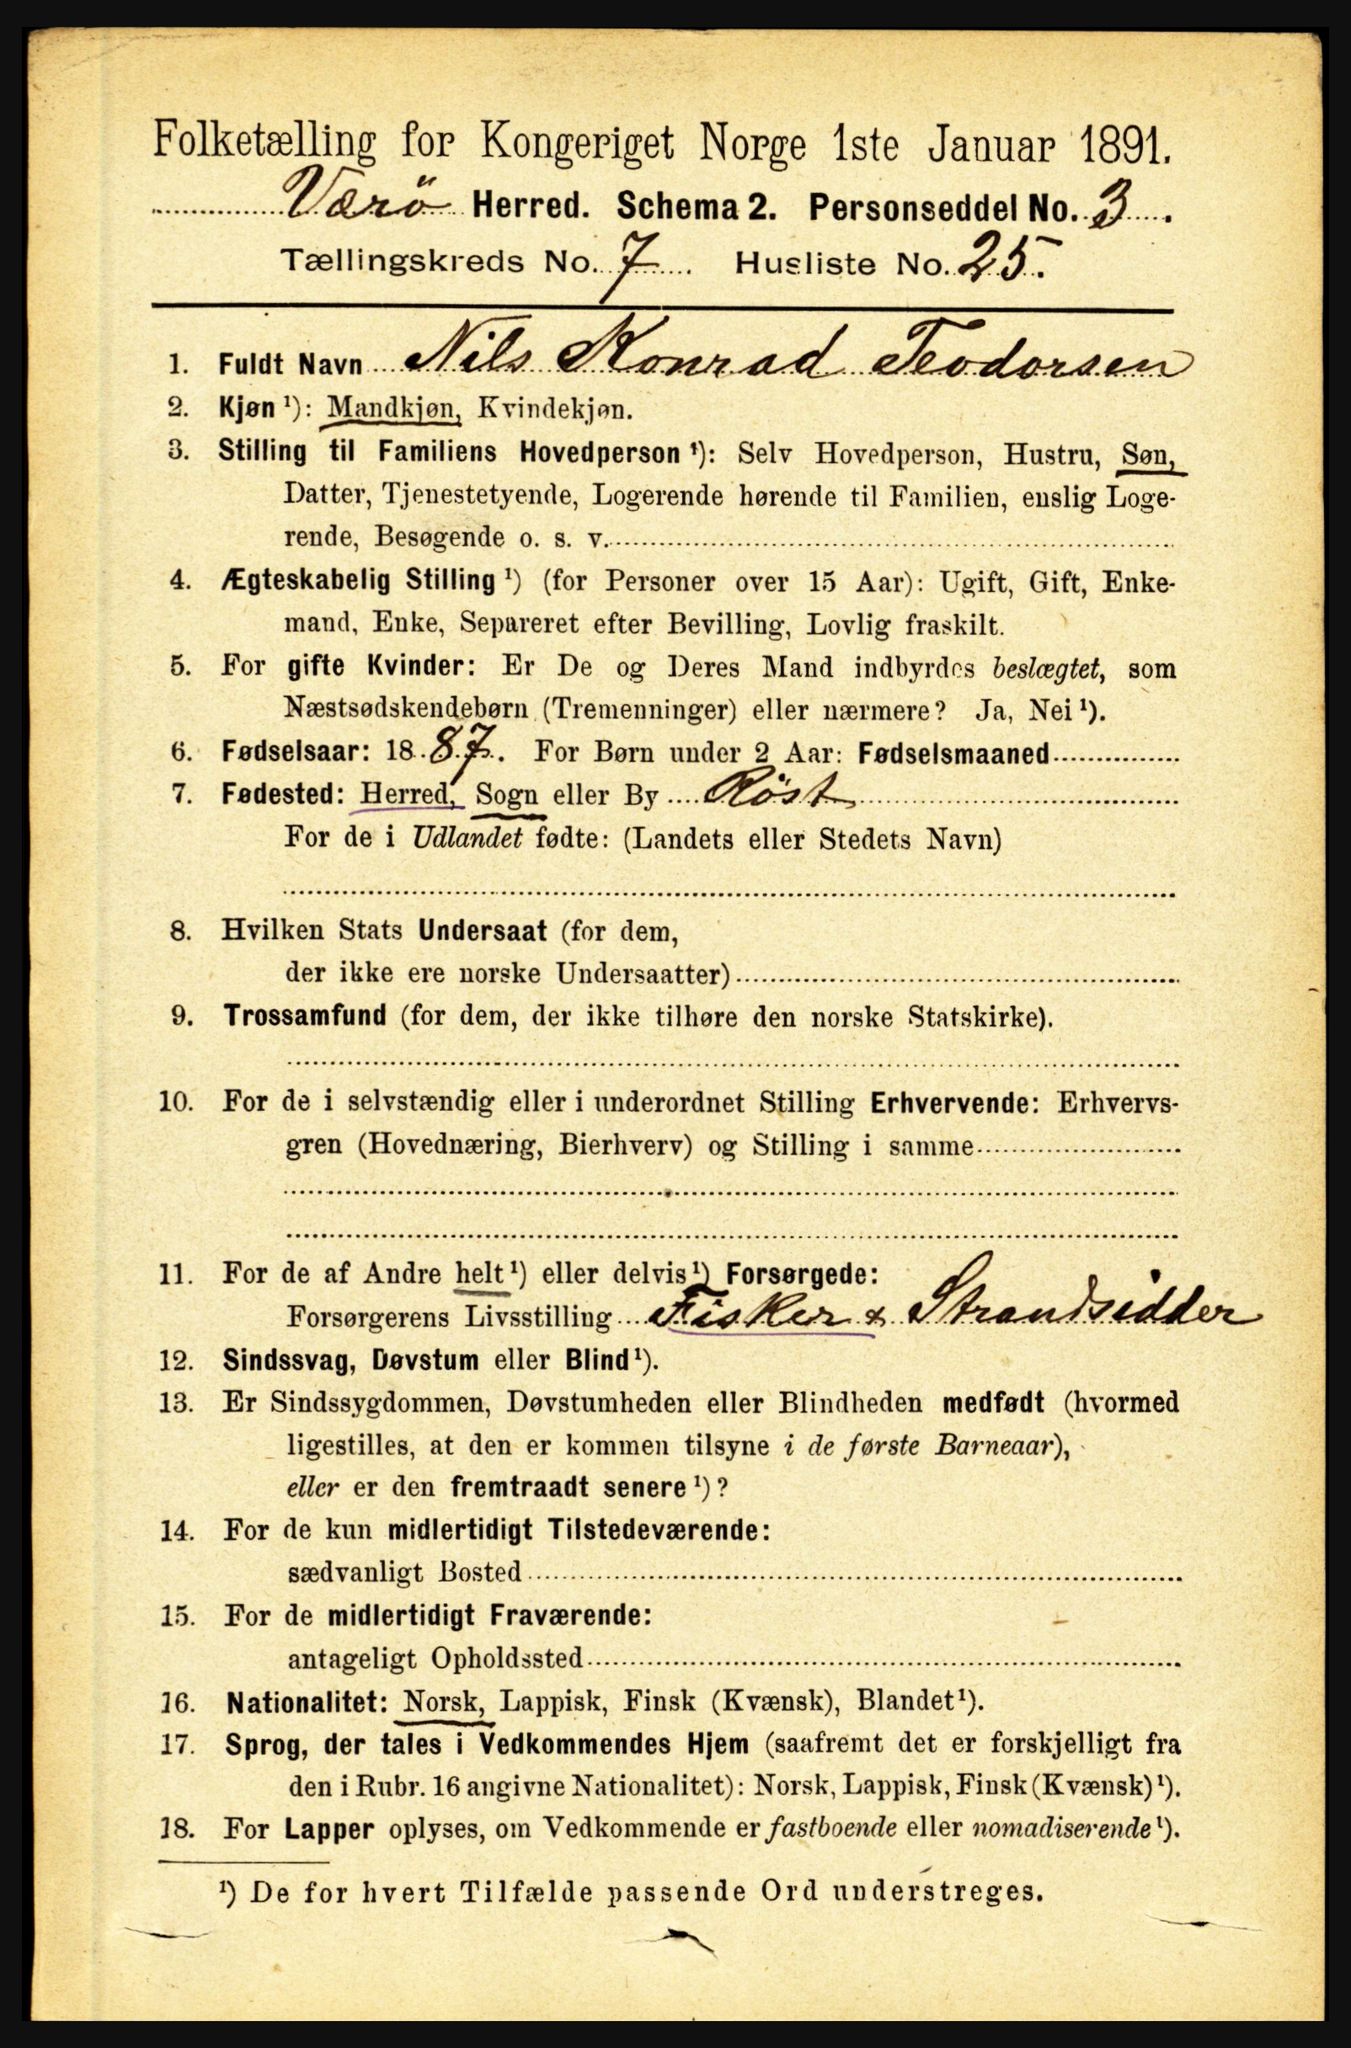 Folketælling for Kongeriget Norge 1ste Januar 1891.
Værö Herred. Schema 2. Personseddel No. 3.
Tællingskreds No. 7. Husliste No. 25.
1. Fuldt Navn Nils Konrad Teodorsen
2. Kjøn ¹): Mandkjøn, Kvindekjøn.
3. Stilling til Familiens Hovedperson ¹): Selv Hovedperson, Hustru, Søn,
Datter, Tjenestetyende, Logerende hørende til Familien, enslig Loge-
rende, Besøgende o. s. v.
4. Ægteskabelig Stilling ¹) (for Personer over 15 Aar): Ugift, Gift, Enke-
mand, Enke, Separeret efter Bevilling, Lovlig fraskilt.
5. For gifte Kvinder: Er De og Deres Mand indbyrdes beslægtet, som
Næstsødskendebørn (Tremenninger) eller nærmere? Ja, Nei ¹).
6. Fødselsaar: 1887. For Børn under 2 Aar: Fødselsmaaned
7. Fødested: Herred, Sogn eller By Röst
For de i Udlandet fødte: (Landets eller Stedets Navn)
8. Hvilken Stats Undersaat (for dem,
der ikke ere norske Undersaatter)
9. Trossamfund (for dem, der ikke tilhøre den norske Statskirke).
10. For de i selvstændig eller i underordnet Stilling Erhvervende: Erhvervs-
gren (Hovednæring, Bierhverv) og Stilling i samme
11. For de af Andre helt ¹) eller delvis ¹) Forsørgede:
Forsørgerens Livsstilling Fisker & Strandsidder
12. Sindssvag, Døvstum eller Blind ¹).
13. Er Sindssygdommen, Døvstumheden eller Blindheden medfødt (hvormed
ligestilles, at den er kommen tilsyne i de første Barneaar),
eller er den fremtraadt senere ¹)?
14. For de kun midlertidigt Tilstedeværende:
sædvanligt Bosted
15. For de midlertidigt Fraværende:
antageligt Opholdssted
16. Nationalitet: Norsk, Lappisk, Finsk (Kvænsk), Blandet ¹).
17. Sprog, der tales i Vedkommendes Hjem (saafremt det er forskjelligt fra
den i Rubr. 16 angivne Nationalitet): Norsk, Lappisk, Finsk (Kvænsk) ¹).
18. For Lapper oplyses, om Vedkommende er fastboende eller nomadiserende ¹).
¹) De for hvert Tilfælde passende Ord understreges.